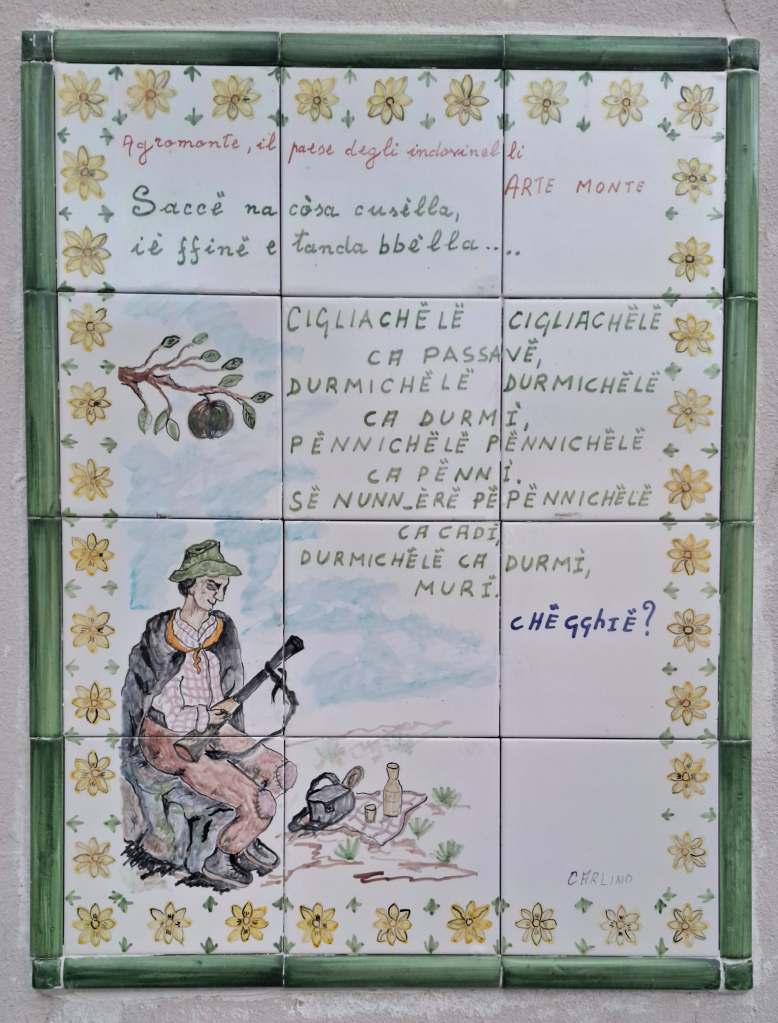 Agromonte, il paese degli indovinelli
ARTE MONTE
Saccë na còsa cusèlla,
iè ffinë e tanda bbèlla.....
CIGLIACHËLË CIGLIACHËLË
CA PASSAVË,
DURMICHËLË DURMICHËLË
CA DURMÌ,
PËNNICHËLË PËNNICHËLË
CA PËNNÌ.
SË NUNN_ÈRË PË PËNNICHËLË
CA CADÌ,
DURMICHËLË CA DURMÌ,
MURÌ.
CHË GGhIË?
CARLINO